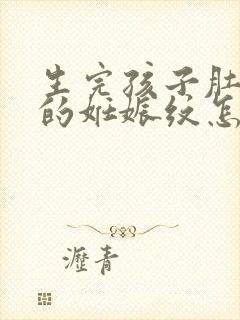 生完孩子肚
的妊娠纹怎
瀝青